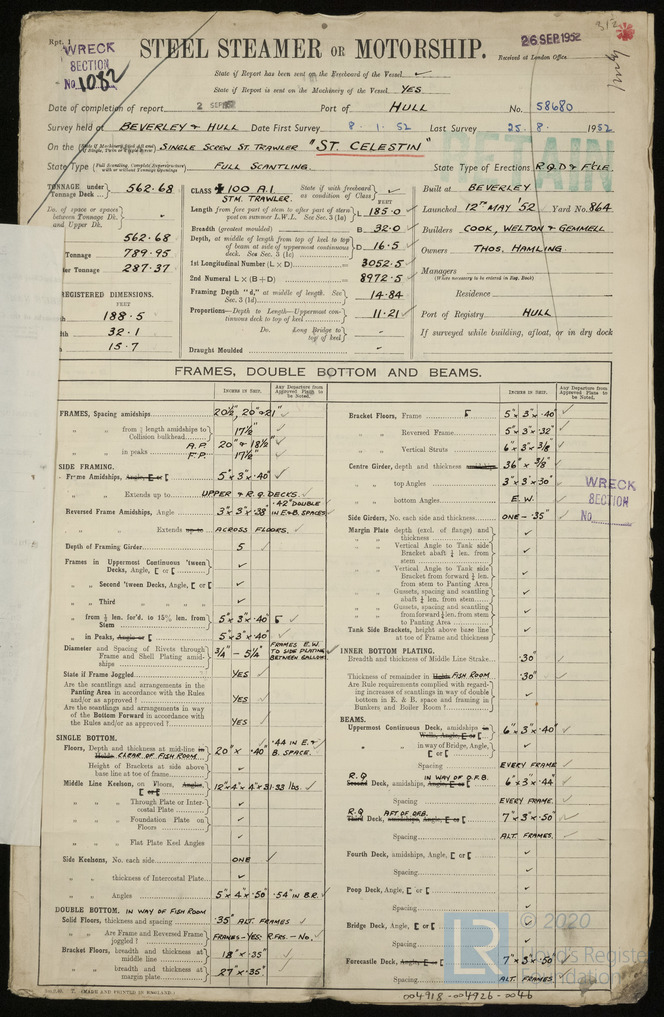 Rpt. 1
WRECK
SECTION
No. 1082
26 SEP 1952
STEEL STEAMER OR MOTORSHIP.
Received at London Office
State if Report has been sent on the Freeboard of the Vessel
State if Report is sent on the Machinery of the Vessel YES
Date of completion of report 2 SEP 1952 Port of HULL No. 58680
Survey held at BEVERLEY & HULL Date First Survey 8.1.52 Last Survey 25.8. 1952
On the SINGLE SCREW ST. TRAWLER "ST. CELESTIN"
RETAIN
State Type FULL SCANTLING. State Type of Erections R.Q.D & F'CLE.
TONNAGE under Tonnage Deck 562.68
Do. of space or spaces between Tonnage Dk. and Upper Dk.
562.68
Tonnage 789.95
Tonnage 287.37
REGISTERED DIMENSIONS.
FEET
188.5
32.1
15.7
CLASS 100 A.1. STM. TRAWLER. State if with freeboard as condition of Class
FEET
Length from fore part of stem to after part of stern post on summer L.W.L. See Sec. 3 (1a) L 185.0
Breadth (greatest moulded) B 32.0
Depth, at middle of length from top of keel to top of beam at side of uppermost continuous deck. See Sec. 3 (1c) D 16.5
1st Longitudinal Number (L × D) 3052.5
2nd Numeral L × (B + D) 8972.5
Framing Depth "d," at middle of length. See Sec. 3 (1d) 14.84
Proportions—Depth to Length—Uppermost continuous deck to top of keel 11.21
Do. Long Bridge to top of keel -
Draught Moulded -
Built at BEVERLEY
Launched 12TH MAY '52 Yard No. 864
Builders COOK, WELTON & GEMMELL
Owners THOS. HAMLING.
Managers
(Where necessary to be entered in Reg. Book)
Residence
Port of Registry HULL
If surveyed while building, afloat, or in dry dock
FRAMES, DOUBLE BOTTOM AND BEAMS.
INCHES IN SHIP. Any Departure from Approved Plans to be Noted.
FRAMES, Spacing amidships 20½", 20" & 21"
" " from ⅓ length amidships to Collision bulkhead 17½"
" " in peaks A.P. 20" & 18½" F.P. 17½"
SIDE FRAMING.
Frame Amidships, Angle, [ or [ 5"×3"×.40"
" " Extends up to UPPER & R.Q. DECKS.
Reversed Frame Amidships, Angle 3"×3"×.38 .42" DOUBLE IN E.&B. SPACES
" " Extends up to ACROSS FLOORS.
Depth of Framing Girder 5
Frames in Uppermost Continuous 'tween Decks, Angle, [ or [
" " Second 'tween Decks, Angle, [ or [
" " Third " " " "
" " from ⅓ len. for'd. to 15% len. from Stem 5"×3"×.40"
" " in Peaks, Angle or [ 5"×3"×.40"
Diameter and Spacing of Rivets through Frame and Shell Plating amidships 3/4" – 5¼" FRAMES E.W. TO SIDE PLATING BETWEEN GALLOWS
State if Frame Joggled YES
Are the scantlings and arrangements in the Panting Area in accordance with the Rules and/or as approved? YES
Are the scantlings and arrangements in way of the Bottom Forward in accordance with the Rules and/or as approved? YES
SINGLE BOTTOM.
Floors, Depth and thickness at mid-line in Holds CLEAR OF FISH ROOM. 20" × .40" .44 IN E.& B. SPACE.
Height of Brackets at side above base line at toe of frame
Middle Line Keelson, on Floors, Angles, [ or [ 12"×4"×4"×31.33 lbs.
" " " Through Plate or Intercostal Plate
" " " Foundation Plate on Floors
" " " Flat Plate Keel Angles
Side Keelsons, No. each side ONE
" " thickness of Intercostal Plate
" " Angles 5"×4"×.50" .54" IN B.R.
DOUBLE BOTTOM. IN WAY OF FISH ROOM
Solid Floors, thickness and spacing .35" ALT. FRAMES
" " Are Frame and Reversed Frame joggled? FRAMES–YES: R.FRS.–No.
Bracket Floors, breadth and thickness at middle line 18"×.35"
" " breadth and thickness at margin plate 27"×.35"
INCHES IN SHIP. Any Departure from Approved Plans to be Noted.
Bracket Floors, Frame 5"×3"×.40"
" " Reversed Frame 5"×3"×.32"
" " Vertical Struts 6"×3"×3/8"
Centre Girder, depth and thickness amidships 36"×3/8"
" " top Angles 3"×3"×.30"
" " bottom Angles E.W.
Side Girders, No. each side and thickness ONE–.35"
Margin Plate depth (excl. of flange) and thickness
" " Vertical Angle to Tank side Bracket abaft ¼ len. from stem
" " Vertical Angle to Tank side Bracket from forward ¼ len. from stem to Panting Area
" " Gussets, spacing and scantling abaft ¼ len. from stem
" " Gussets, spacing and scantling forward ¼ len. from stem to Panting Area
Tank Side Brackets, height above base line at toe of Frame and thickness
WRECK
SECTION
No
INNER BOTTOM PLATING.
Breadth and thickness of Middle Line Strake .30"
Thickness of remainder in Holds FISH ROOM .30"
Are Rule requirements complied with regarding increases of scantlings in way of double bottom in E. & B. space and framing in Bunkers and Boiler Room?
BEAMS.
Uppermost Continuous Deck, amidships in Wells, Angle, [ or [ 6"×3"×.40"
" " in way of Bridge, Angle, [ or [
Spacing EVERY FRAME
R.Q Second Deck, amidships, Angle, [ or [ IN WAY OF O.F.B. 6"×3"×.44"
Spacing EVERY FRAME.
R.Q Third Deck, amidships, Angle, [ or [ AFT OF O.F.B. 7"×3"×.50"
Spacing ALT. FRAMES.
Fourth Deck, amidships, Angle, [ or [
Spacing
Poop Deck, Angle, [ or [
Spacing
Bridge Deck, Angle, [ or [
Spacing
Forecastle Deck, Angle, [ or [ 7"×3"×.50"
Spacing ALT. FRAMES
LR © 2020
Lloyd's Register
Foundation
(MADE AND PRINTED IN ENGLAND)
004918-004926-0046